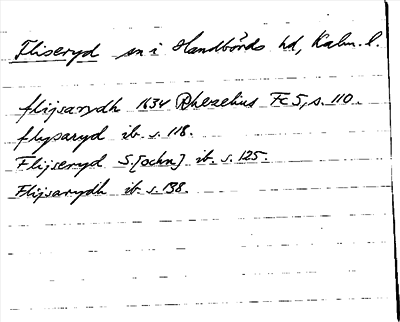 Fliseryd sn i Handbörds hd, Kalm. l.
flijsarydh 1634 Rhezelius Fc 5, s. 110.
flysaryd ib. s. 118.
Flijseryd S. [ochn] ib. s. 125.
Flijsarydh ib. s. 138.